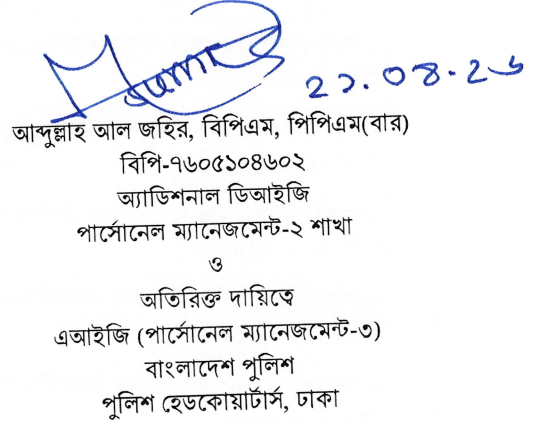 ২১.০৪.২৬
আব্দুল্লাহ আল জহির, বিপিএম, পিপিএম(বার)
বিপি-৭৬০৫১০৪৬০২
অ্যাডিশনাল ডিআইজি
পার্সোনেল ম্যানেজমেন্ট-২ শাখা
ও
অতিরিক্ত দায়িত্বে
এআইজি (পার্সোনেল ম্যানেজমেন্ট-৩)
বাংলাদেশ পুলিশ
পুলিশ হেডকোয়ার্টার্স, ঢাকা